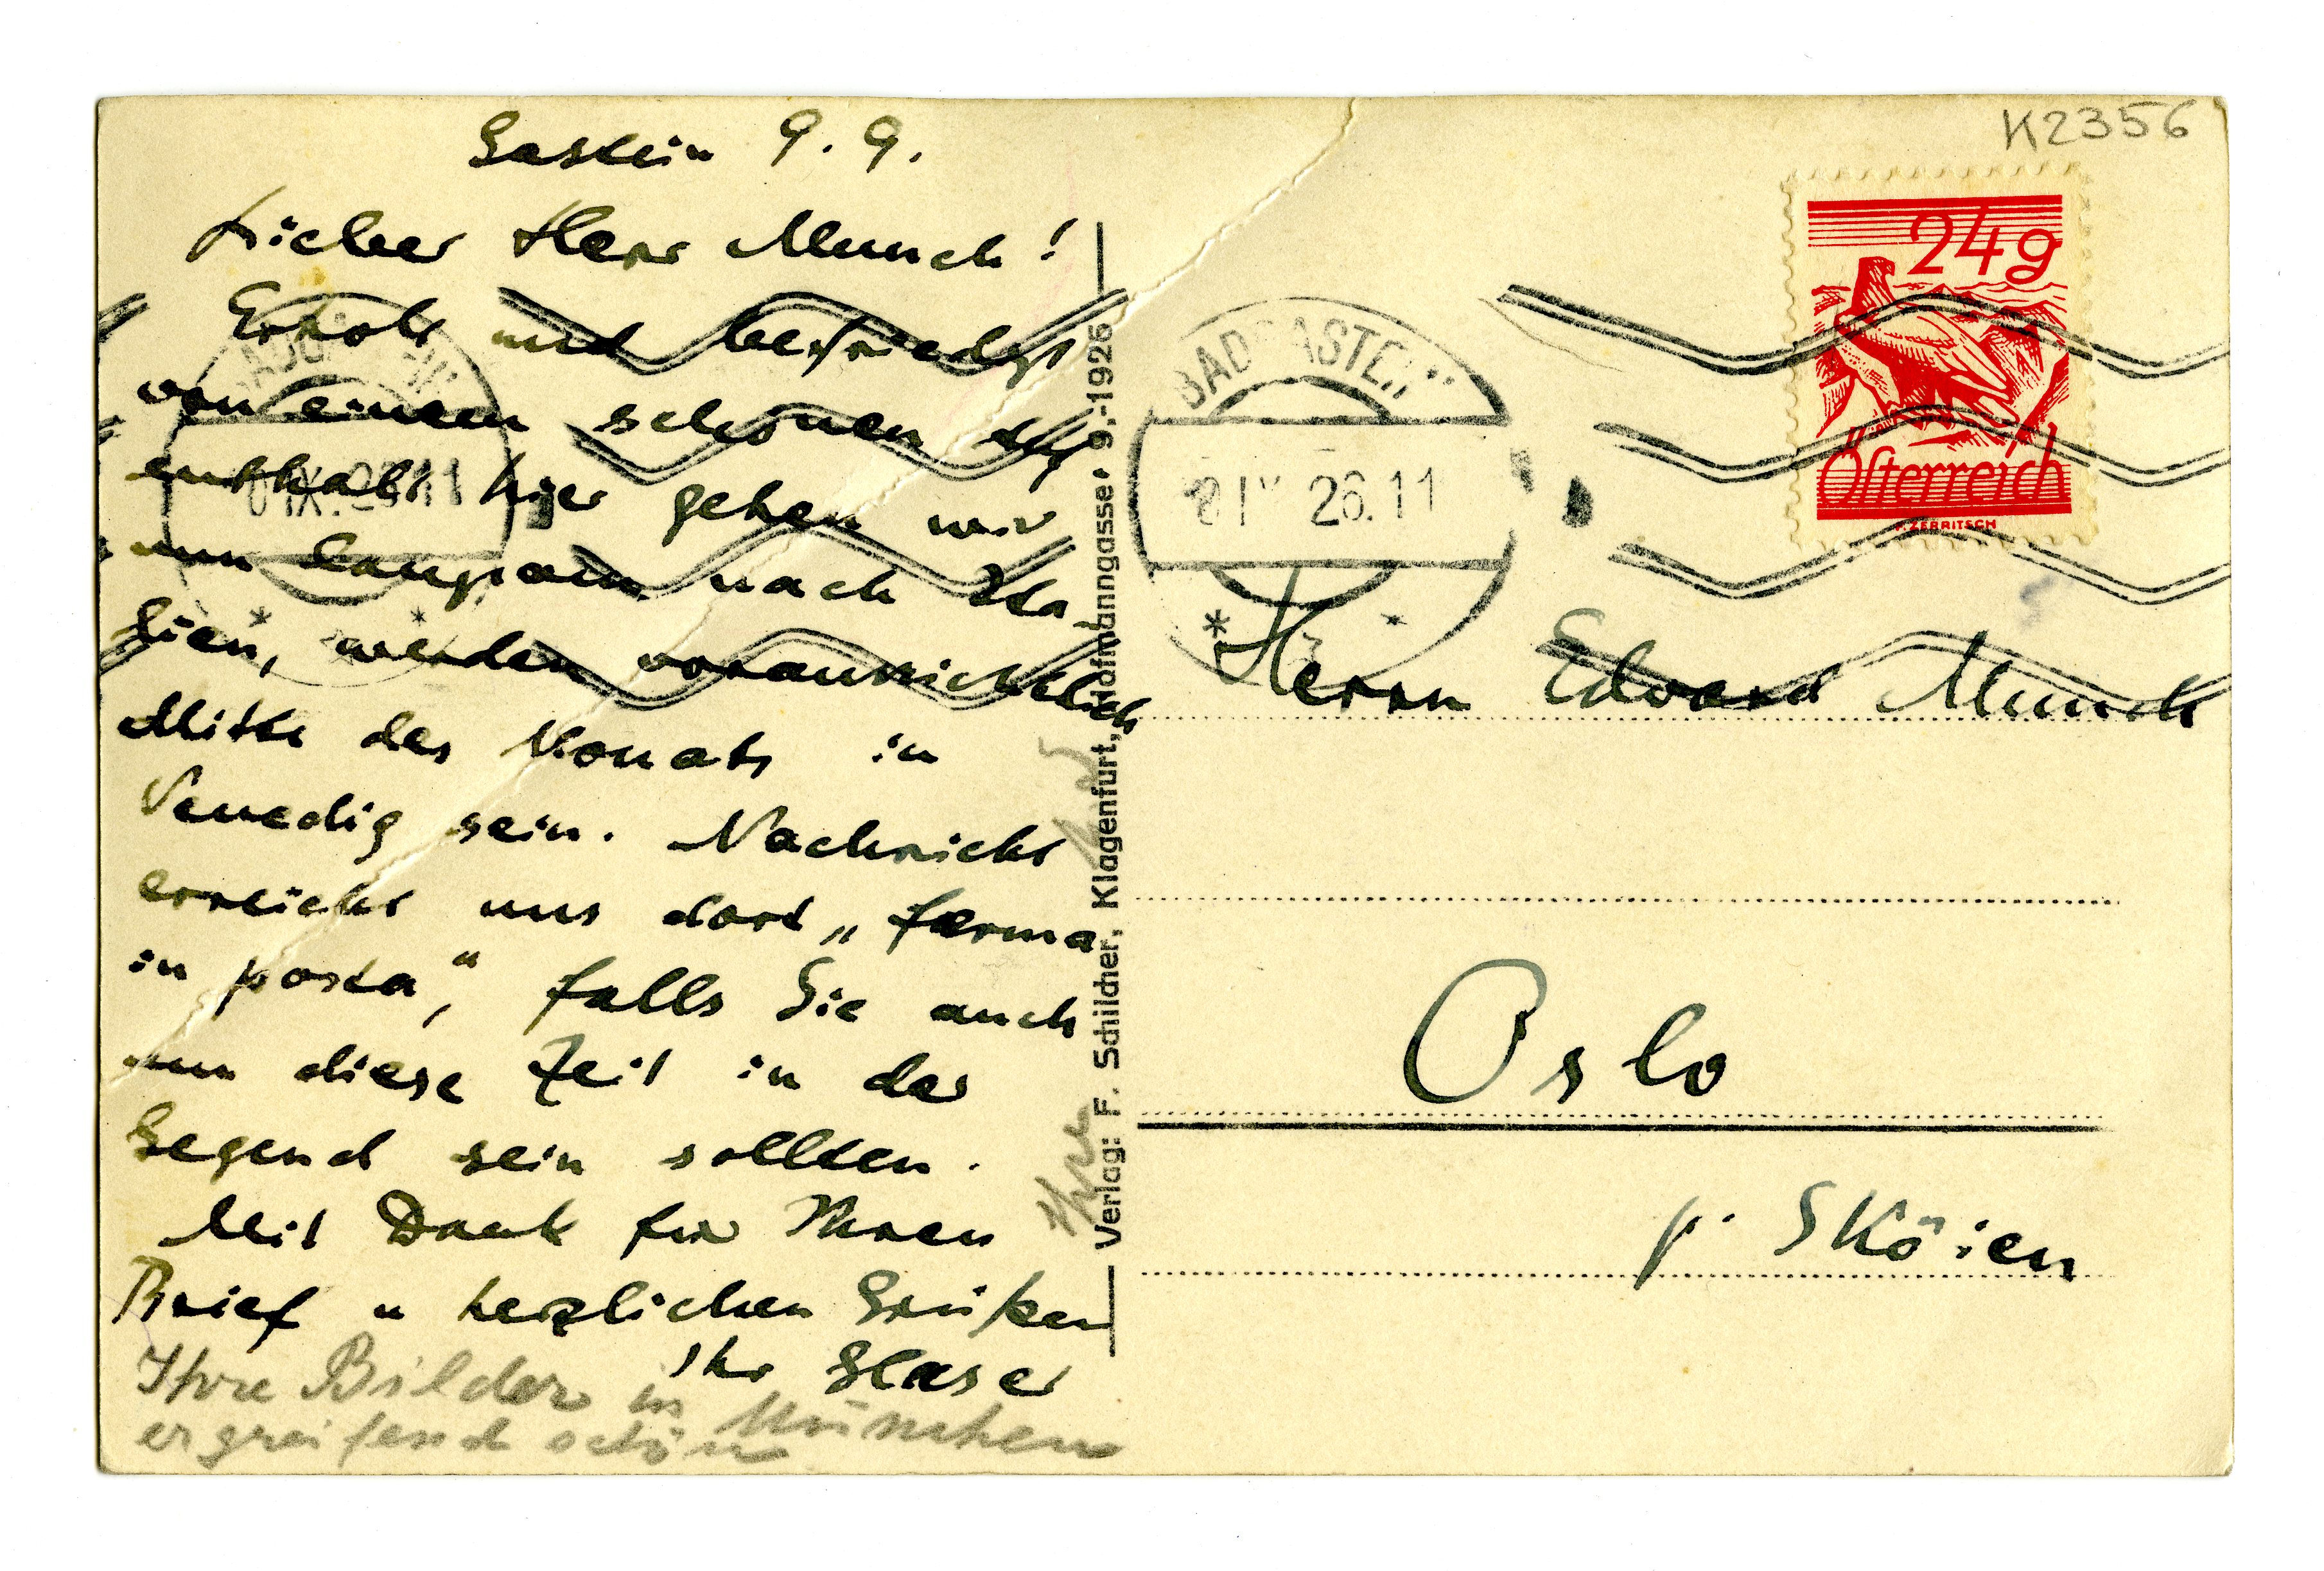 K2356
Gastein 9. 9.
Lieber Herr Munch!
Erholt und befriedigt
von einem schönen Auf
enthalt hier gehen wir
nun langsam nach Ita-
lien, werden voraussichtlich
Mitte des Monats in
Venedig sein. Nachricht
erreicht uns dort „ferma
in posta“, falls Sie auch
um diese Zeit in der
Gegend sein sollten.
Mit Dank für Ihren
Brief u herzlichen Grüßen
Ihr Glaser
Ihre Bilder in München
ergreifend schön
Ihre
Verlag: F. Schildher, Klagenfurt, Hofmanngasse. 9.-1926
BADGASTEIN
26.11
24g
Österreich
F. ZERRITSCH
Herrn Edvard Munch
Oslo
p. Sköien